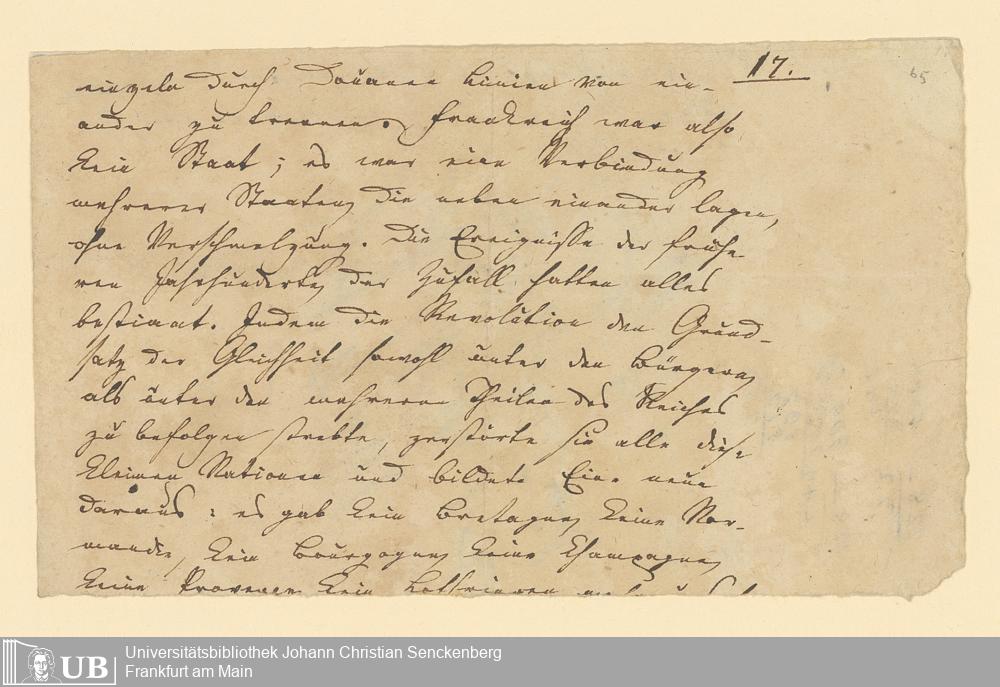 17.
65
einzeln durch Douanen Linien von ein-
ander zu trennen. Frankreich war also
kein Staat; es war eine Verbindung
mehrerer Staaten, die neben einander lagen,
ohne Verschmelzung. Die Ereignisse der frühe-
ren Jahrhunderte, der Zufall hatten alles
bestimmt. Indem die Revolution den Grund-
satz der Gleichheit sowohl unter den Bürgern,
als unter den mehreren Theilen des Reiches
zu befolgen strebte, zerstörte sie alle diese
kleinen Nationen und bildete Eine neue
daraus: es gab kein Bretagne, keine Nor-
mandie, kein Bourgogne, keine Champagne,
keine Provence kein Lothringen
UB
Universitätsbibliothek Johann Christian Senckenberg
Frankfurt am Main